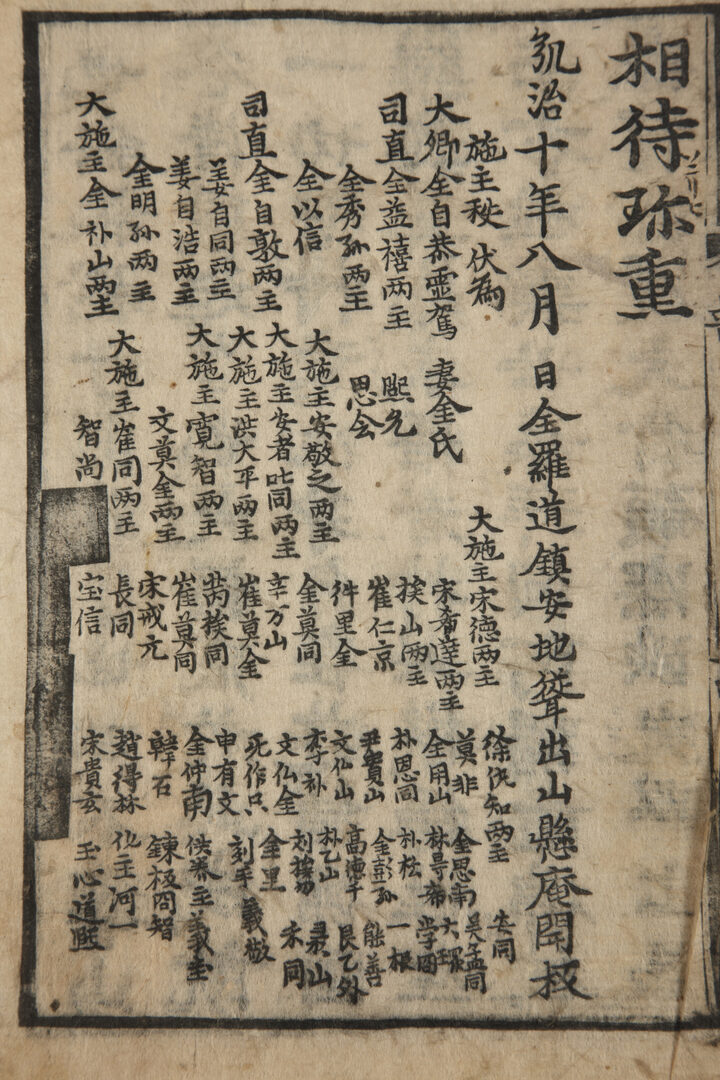 相待珎重
弘治十年八月 日全羅道鎮安地聳出山懸庵開板
施主秩 伏為
大施主宋德两主
徐仇知两主
大卿金自恭靈駕 妻金氏
宋希達两主
莫非
金思南
吴孟同
司直金益禧两主
熙允
挨山两主
金用山
大琛
金秀孙两主
思会
崔仁京
朴思同
朴松
一根
金以信
大施主安敬之两主
件里金
尹貴山
金彭孙
能善
司直金自敦两主
大施主安者叱同两主
金莫同
文仏山
高德千
姜自同两主
大施主洪大平两主
辛万山
李朴
朴乙山
姜自浩两主
大施主寛智两主
崔莫金
文仏金
未同
金明孙两主
文莫金两主
崔莫同
申有文
金里
大施主金朴山两主
大施主崔同两主
宋戒元
金仲南
刻手 義敬
智尚
長同
韓石
供养主義圭
宝信
趙得林
鍊板冏智
宋貴玄
化主河一
玉心道熙